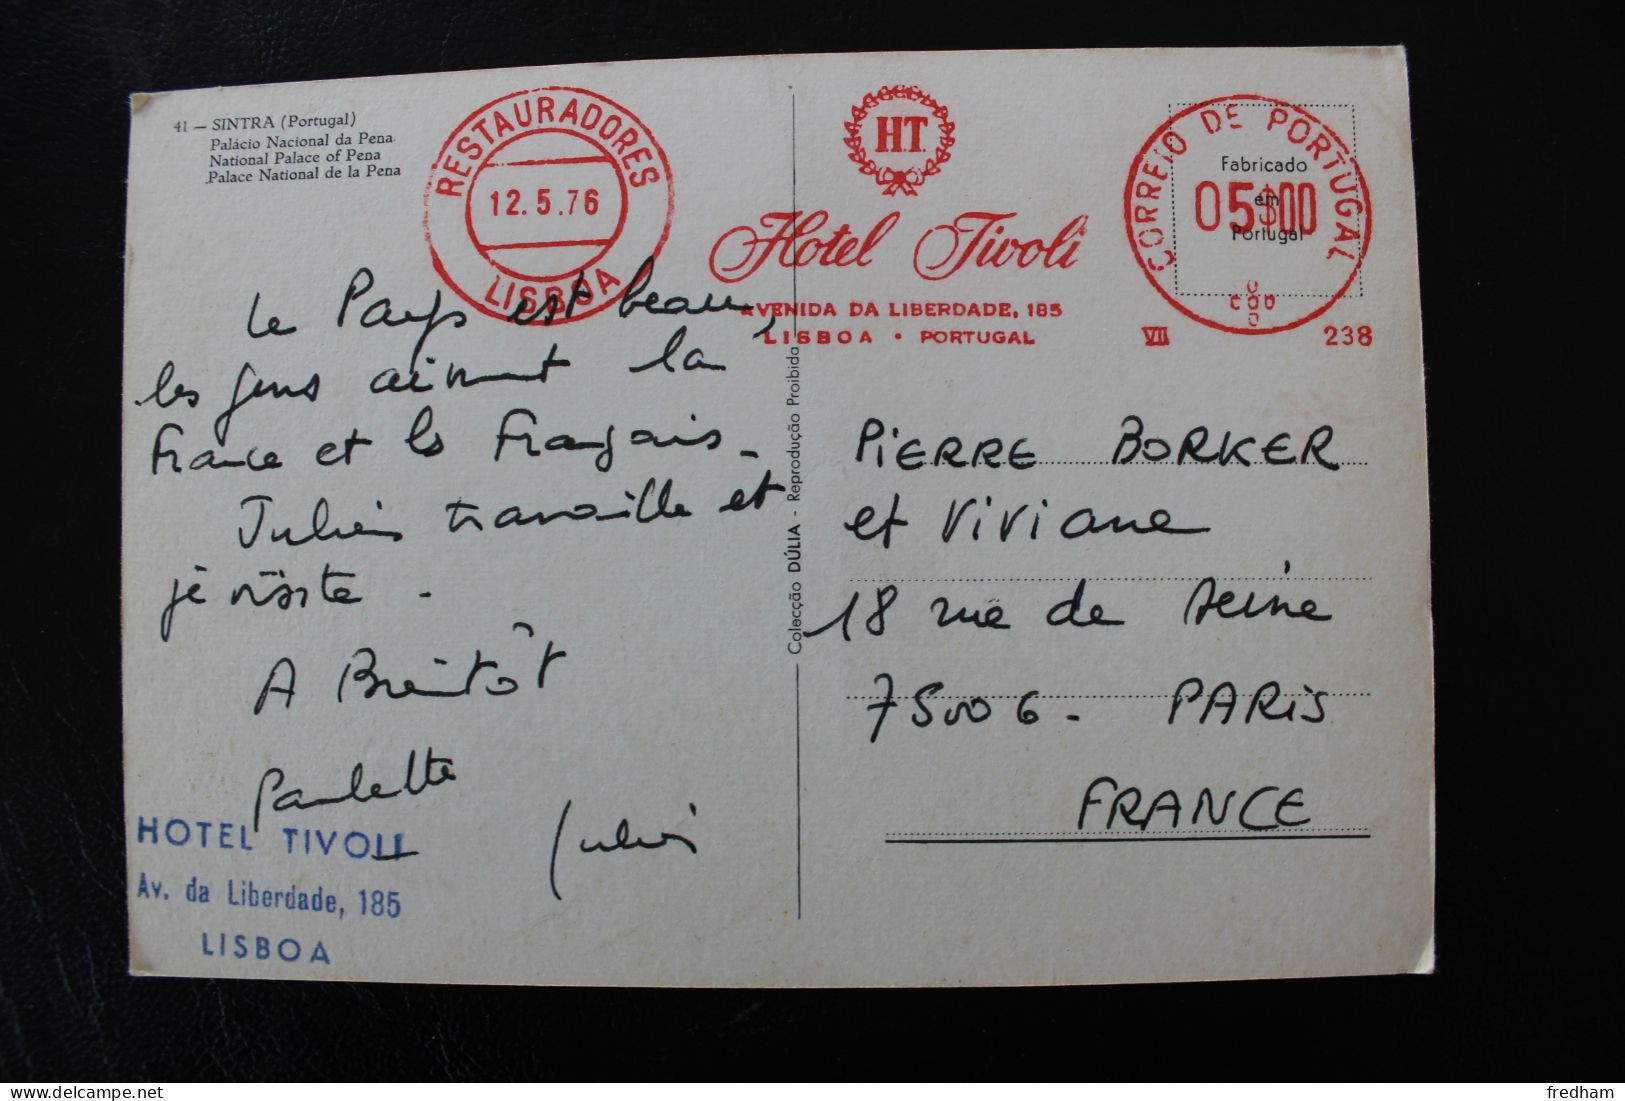 41 — SINTRA (Portugal)
Palácio Nacional da Pena
National Palace of Pena
Palace National de la Pena
RESTAURADORES
12.5.76
LISBOA
HT
Hotel Tivoli
AVENIDA DA LIBERDADE, 185
LISBOA · PORTUGAL
CORREIO DE PORTUGAL
Fabricado
em
Portugal
05$00
VII
238
le Pays est beau,
les gens aiment la
France et les Français.
Julien travaille et
je visite.
A Bientôt
Paulette
Julien
HOTEL TIVOLI
Av. da Liberdade, 185
LISBOA
Colecção DÚLIA - Reprodução Proibida
PiERRE BORKER
et Viviane
18 rue de Seine
75006 - PARiS
FRANCE
delcampe.net
fredham